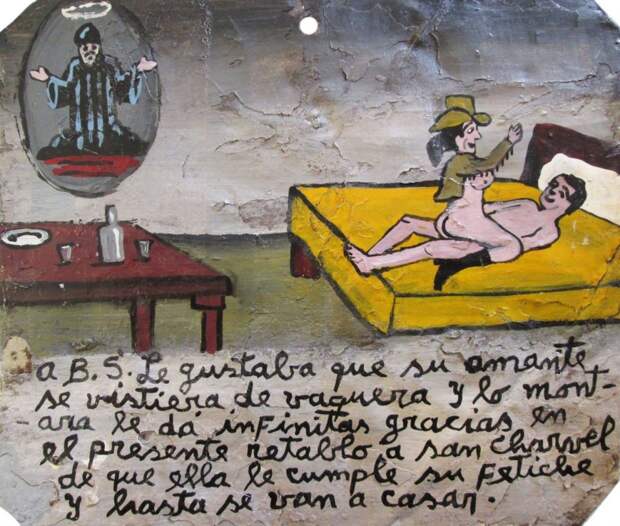 a B. S. Le gustaba que su amante
se vistiera de vaquera y lo mont-
-ara le dá infinitas gracias en
el presente retablo a san charvel
de que ella le cumple su fetiche
y hasta se van a casar.